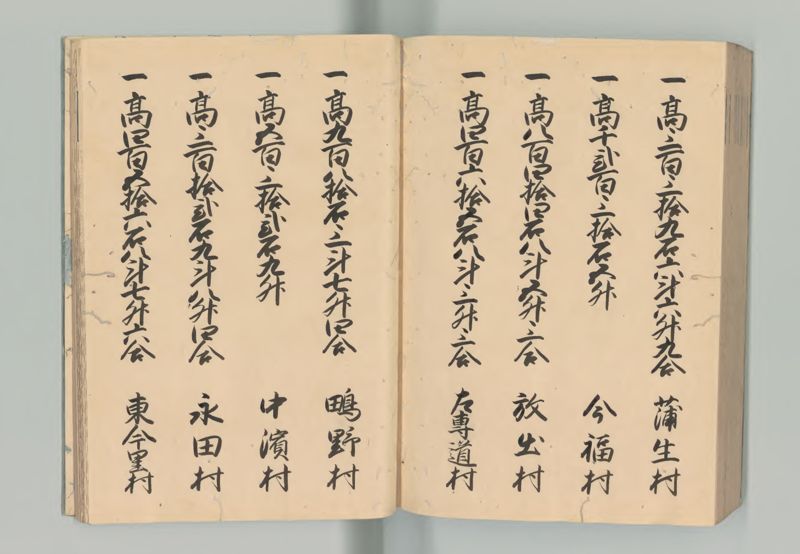 一高三百三拾九石六斗六升九合 蒲生村
一高千弐百三拾石五升 今福村
一高八百四拾四石八斗五升三合 放出村
一高四百六拾五石八斗三升三合 左専道村
一高九百八拾石三斗七升四合 鴫野村
一高五百三拾弐石九升 中濱村
一高三百拾弐石九斗八升四合 永田村
一高四百五拾六石八斗七升六合 東今里村